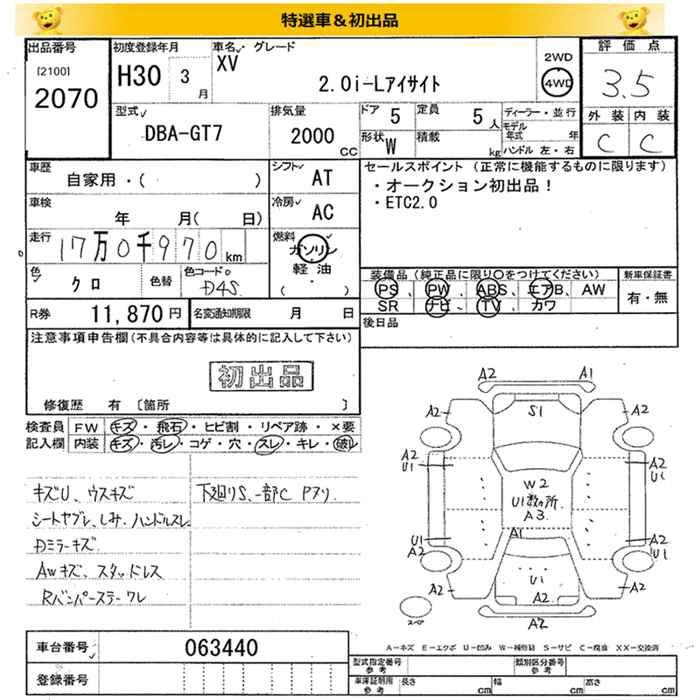 特選車＆初出品
出品番号
[2100]
2070
初度登録年月
H30 3月
車名・グレード
XV
2.0i-Lアイサイト
2WD
4WD
評価点
3.5
外装 内装
C C
型式
DBA-GT7
排気量
2000 CC
ドア 5
定員 5人
形状 W
積載 kg
ディーラー・並行
モデル年式 年
ハンドル 左・右
車歴
自家用・( )
シフト AT
セールスポイント (正常に機能するものに限ります)
・オークション初出品！
・ETC2.0
車検
年 月( 日)
冷房 AC
走行
17万0千970km
燃料
ガソリン
軽油
( ・ )
色
クロ
色替
色コードo
D4S
装備品(純正品に限り○をつけてください)
PS、PW、ABS、エアB、AW
SR ナビ、TV、カワ
新車保証書
有・無
R券 11,870円
名変通知期限 月 日
後日品
注意事項申告欄(不具合内容等は具体的に記入して下さい)
初出品
修復歴 有 〔箇所 〕
検査員記入欄
FW キズ・飛石・ヒビ割・リペア跡・×要
内装 キズ・汚レ・コゲ・穴・スレ・キレ・破レ
キズU、ウスキズ
シートヤブレ、しみ、ハンドルスレ
Dミラーキズ
AWキズ、スタッドレス
Rバンパーステーワレ
下廻りS、一部C Pヌリ
A2 A1
A2 S1 A2
A2 U1
A2 U1
W2
U1数ヶ所
A3
A1
U1 A2
A2 U1
U1
A2 A2 A2
A2
スペア
A－キズ E－エクボ U－凹み W－補修跡 S－サビ C－腐食 XX－交換済
車台番号 063440
登録番号
型式指定番号 参考
類別区分番号 参考
車庫証明用 参考
長さ cm 幅 cm 高さ cm